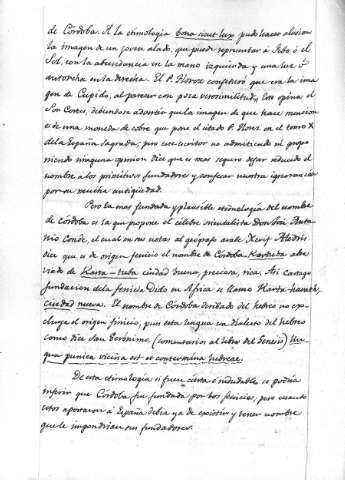 de Córdoba. A la etimologia bona sicut lux pudo hacer alusion
la imagen de un joven alado, que puede representar á Febo ó el
Sol, con la abundancia en la mano izquierda y una luz ó
antorcha en la derecha. El P. Florez conjeturó que era la ima
gen de Cupido, al parecer con poca verosimilitud, como opina el
Sor Cortes, debiendose advertir que la imagen de que hace mencion
es de una moneda de cobre que pone el citado P. Florez en el tomo X
de la España Sagrada; pero este escritor no admitiendo ni propo
niendo ninguna opinion dice que es mas seguro dejar reducido el
nombre a los primitivos fundadores y confesar nuestra ignorancia
por su mucha antigüedad.
Pero la mas fundada y plausible etimologia del nombre
de Córdoba es la que propone el célebre orientalista Don José Anto
nio Conde, el cual en sus notas al geógrafo arabe Xerif Aledris
dice que es de origen fenicio el nombre de Córdoba Kartuba abre
viado de Karta-tuba ciudad buena, preciosa, rica. Asi Cartago
fundacion de la fenicia Dido en Africa se llamó Karta-hanath,
ciudad nueva. El nombre de Córdoba derivado del hebreo no ex-
cluye el origen fenicio, pues esta lengua es dialecto del hebreo
como dice San Gerónimo, (comentarios al libro del Genesis) Lin
gua punica vicina est et contermina hebreae.
De esta etimologia si fuese cierta é indudable se podria
inferir que Córdoba fue fundada por los fenicios, pero cuando
estos aportaron á España debia ya de existir y tener nombre
que le impondrian sus fundadores.